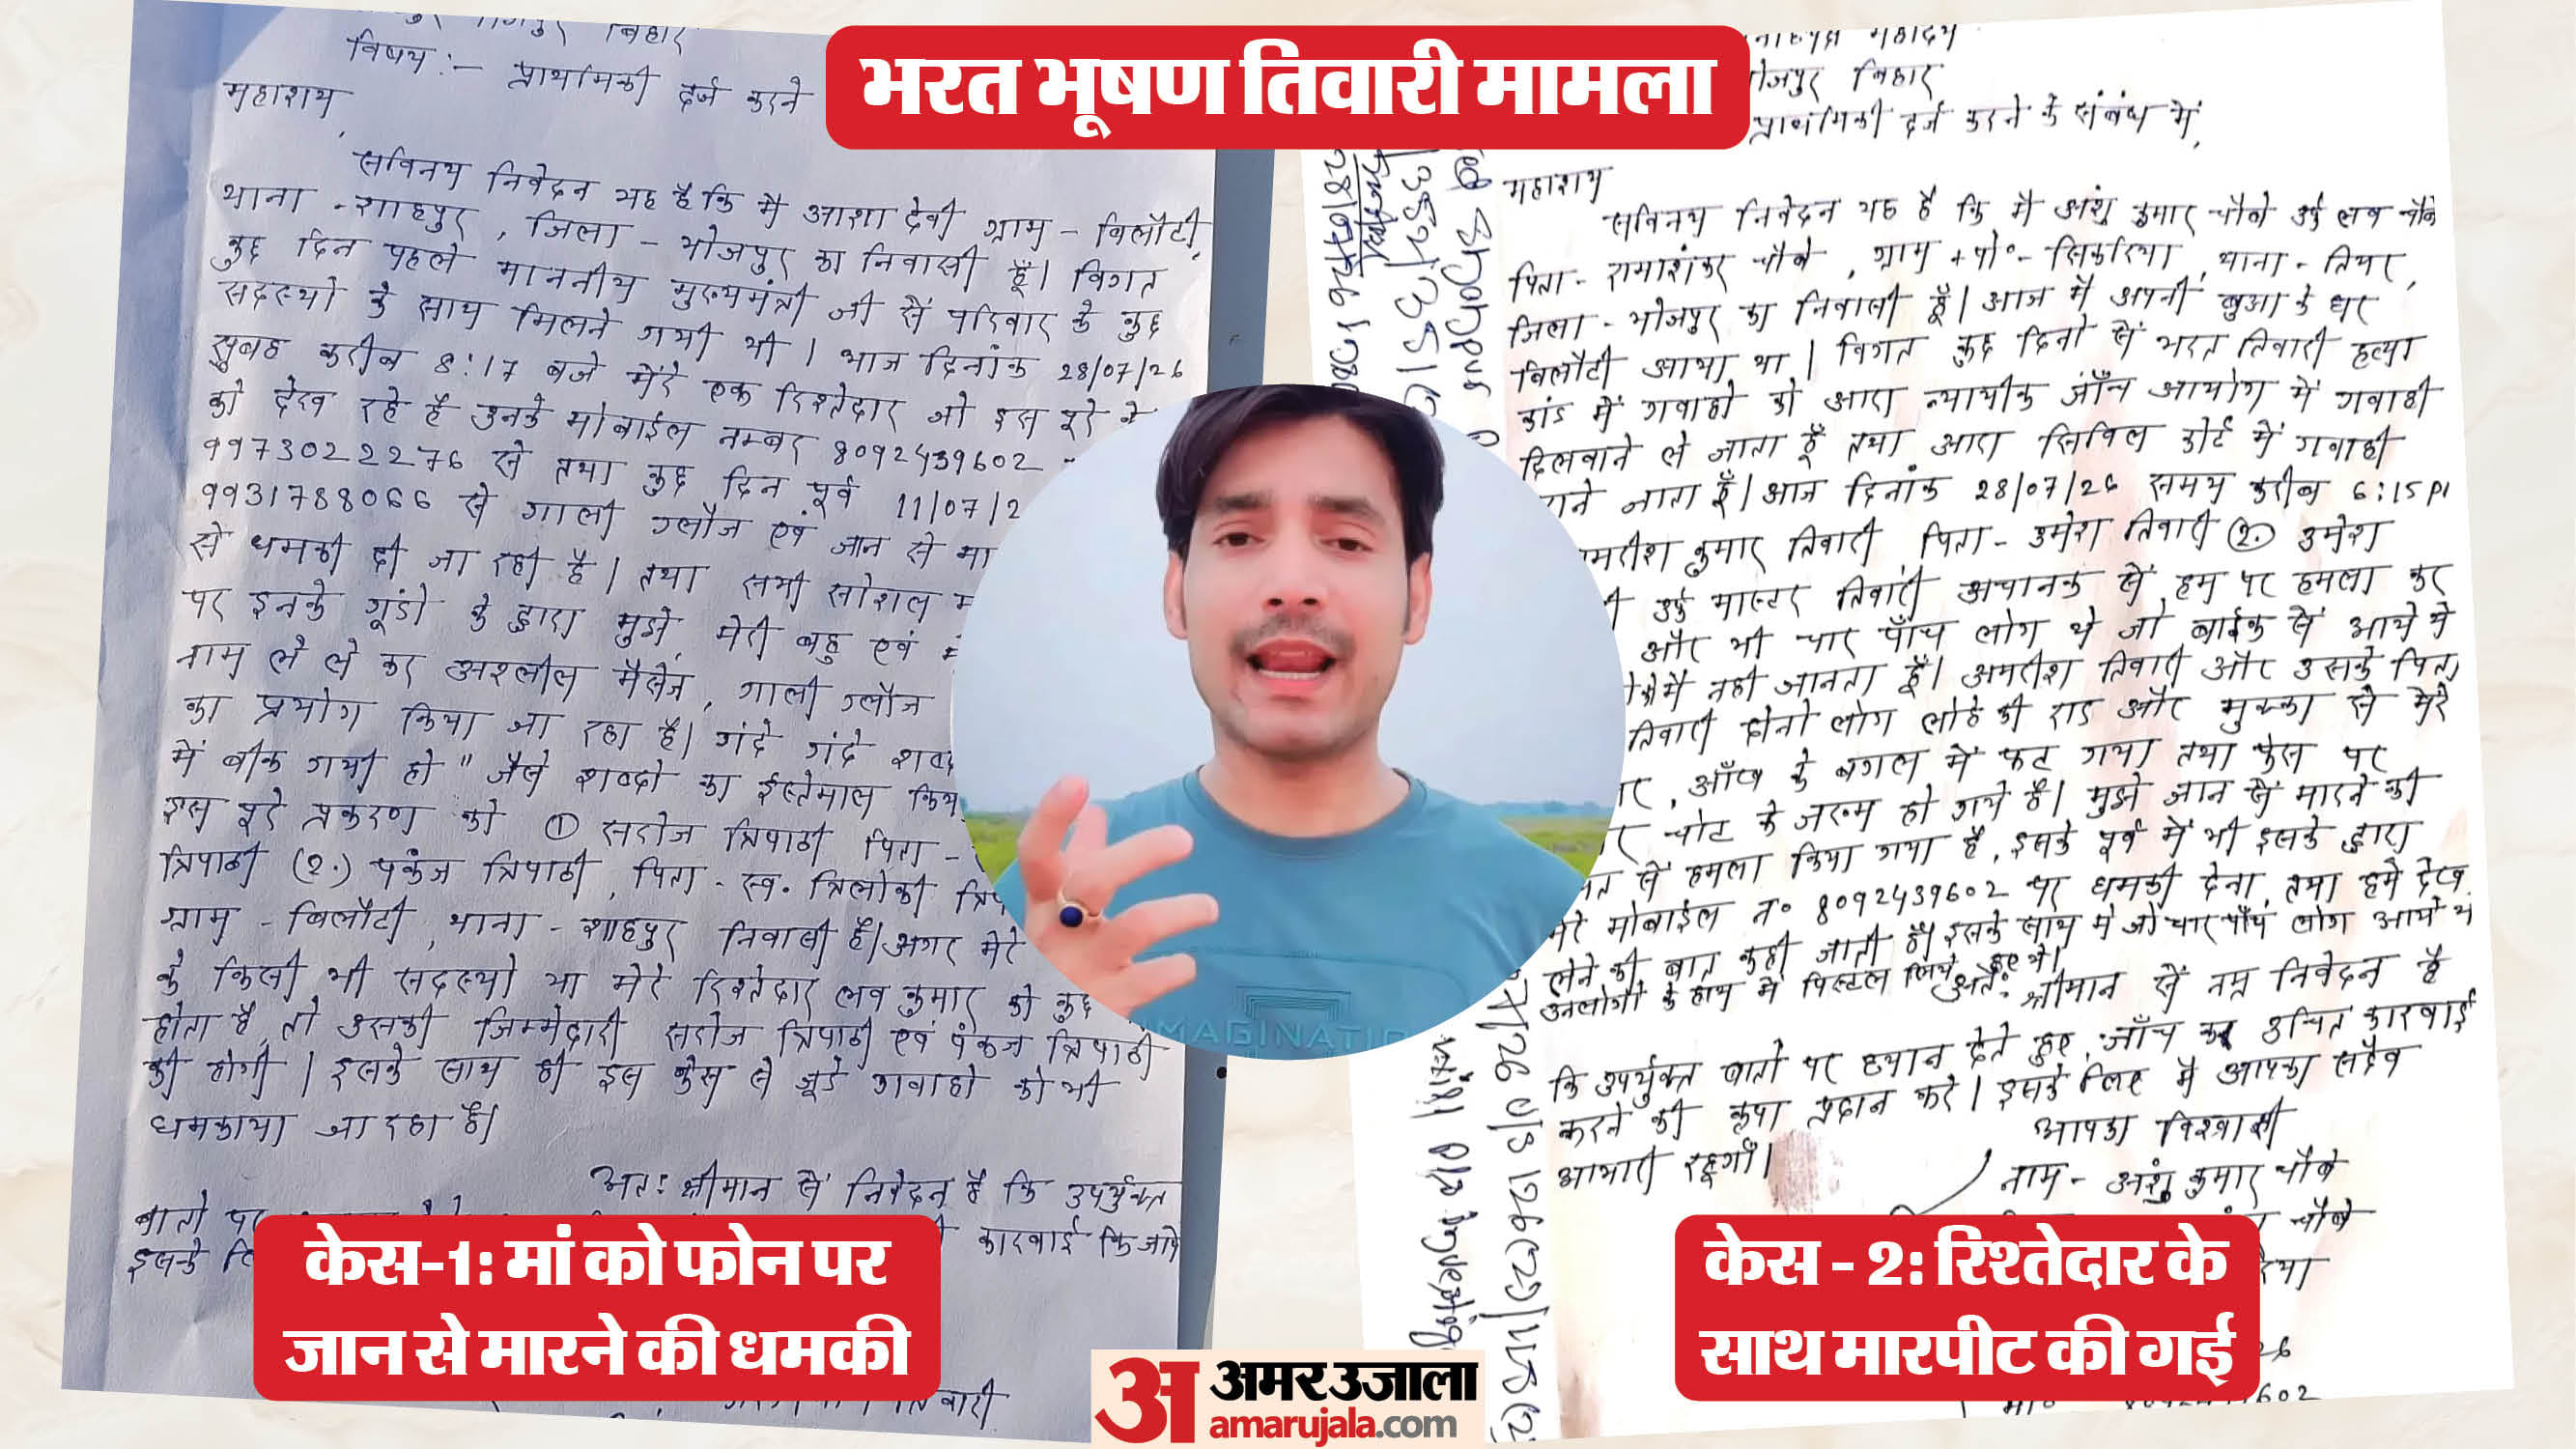 भरत भूषण तिवारी मामला
बिहार
विषय :- प्राथमिकी दर्ज करने
महाशय,
सविनय निवेदन यह है कि मै आशा देवी ग्राम - बिलौटी,
थाना - शाहपुर, जिला - भोजपुर का निवासी हूँ। विगत
कुछ दिन पहले माननीय मुख्यमंत्री जी सें परिवार के कुछ
सदस्यो के साथ मिलने गयी थी। आज दिनांक 28/07/26
सुबह करीब 8:17 बजे मेंरे एक रिश्तेदार जो इस पूरे के
को देख रहे है उनके मोबाईल नम्बर 8092439602
9973022276 से तथा कुछ दिन पूर्व 11/07/2
9931788066 से गाली ग्लौज एवं जान से मा
से धमकी दी जा रही है। तथा सभी सोशल म
पर इनके गूंडो के द्वारा मुझे, मेरी बहु एवं मे
नाम ले ले कर अश्लील मैसेज, गाली ग्लौज
का प्रयोग किया जा रहा है। गंदे गंदे शब्द
में बीक गयी हो" जैसे शब्दो का ईस्तेमाल किय
इस पूरे प्रकरण को ① सरोज त्रिपाठी पिता -
त्रिपाठी (2.) पकंज त्रिपाठी, पिता - स्व. त्रिलोकी त्रिप
ग्राम - बिलौटी, थाना - शाहपुर निवासी है। अगर मेरे
के किसी भी सदस्यो या मेरे रिश्तेदार लव कुमार को कुछ
होता है, तो उसकी जिम्मेदारी सरोज त्रिपाठी एवं पंकज त्रिपाठी
की होगी। इसके साथ ही इस केस से जूडे गवाहो को भी
धमकाया जा रहा है।
अत: श्रीमान सें निवेदन है कि उपर्युक्त
बातो पर
कारवाई कि जाये
इसके लि
महोदय
भोजपुर बिहार
प्राथमिकी दर्ज करने के संबंध में,
महाशय
सविनय निवेदन यह है कि मै अंशु कुमार चौबे उर्फ लव चौबे
पिता - रामाशंकर चौबे, ग्राम + पो० - सिकरिया, थाना - तियर,
जिला - भोजपुर का निवासी हूँ। आज मै अपनी बुआ के घर
बिलौटी आया था। विगत कुछ दिनो सें भरत तिवारी हत्या
कांड में गवाहो को आरा न्यायीक जाँच आयोग में गवाही
दिलवाने ले जाता हूँ तथा आरा सिविल कोर्ट में गवाही
जाता हूँ। आज दिनांक 28/07/26 समय करीब 6:15
कुमार तिवारी पिता - उमेश तिवारी ②. उमेश
उर्फ मास्टर तिवारी अचानक सें हम पर हमला कर
और भी चार पाँच लोग थे जो बाईक सें आये थे
मै नही जानता हूँ। अमरीश तिवारी और उसके पिता
तिवारी दोनो लोग लोहे की राड और मुक्का से मेरे
, आँख के बगल में फट गया तथा फेस पर
चोट के जख्म हो गये है। मुझे जान सें मारने की
सें हमला किया गया है, इसके पूर्व में भी इसके द्वारा
मेरे मोबाईल न० 8092439602 पर धमकी देना, तथा हमे देख
लेने की बात कही जाती है। इसके साथ मे जो चार पाँच लोग आये थे
उनलोगो के हाथ में पिस्टल लिये हुए थे।
अतः श्रीमान सें नम्र निवेदन है
कि उपर्युक्त बातो पर ध्यान देते हुए जाँच कर उचित कारवाई
करने की कृपा प्रदान करे। इसके लिए मै आपका सदैव
आभारी रहूगाँ।
आपका विश्वासी
नाम - अंशु कुमार चौबे
चौबे
केस-1: मां को फोन पर
जान से मारने की धमकी
केस - 2: रिश्तेदार के
साथ मारपीट की गई
अ अमर उजाला
amarujala.com